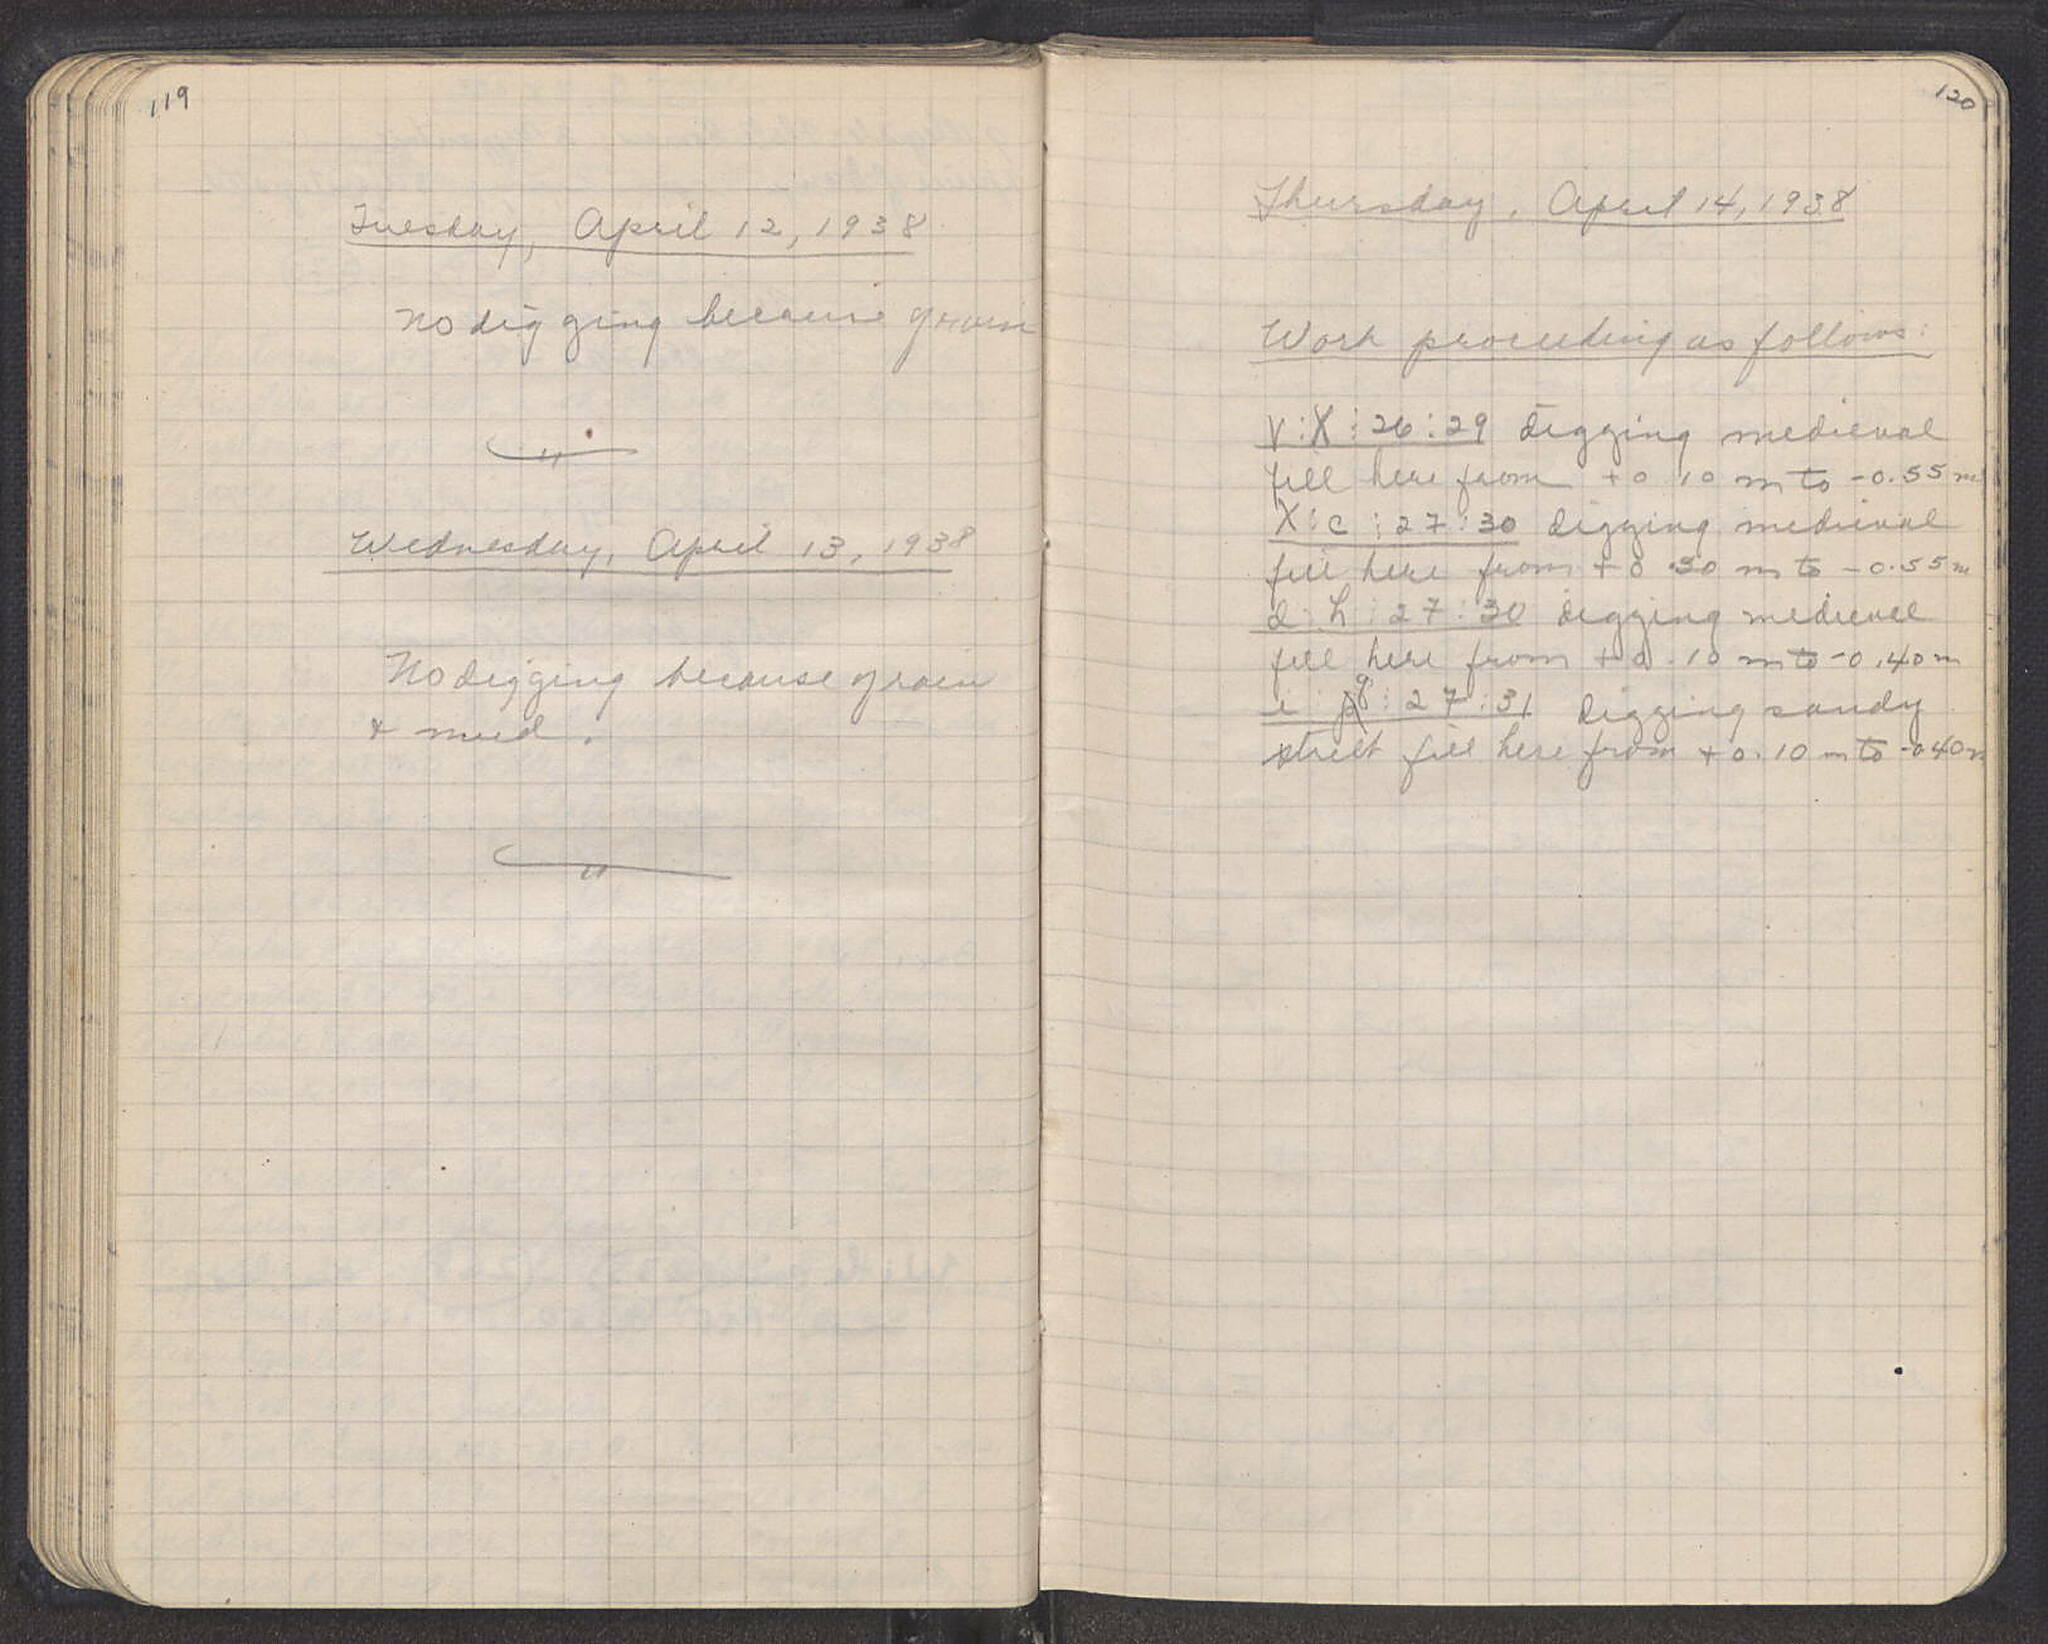 119
Tuesday, April 12, 1938
No digging because of rain
Wednesday, April 13, 1938
No digging because of rain
& mud.
120
Thursday, April 14, 1938
Work proceeding as follows:
V:X:26:29 digging medieval
fill here from +0.10 m to -0.55 m
X:c:27:30 digging medieval
fill here from +0.30 m to -0.55 m
d:h:27:30 digging medieval
fill here from +0.10 m to -0.40 m
i:q:27:31 Digging sandy
street fill here from +0.10 m to -0.40 m